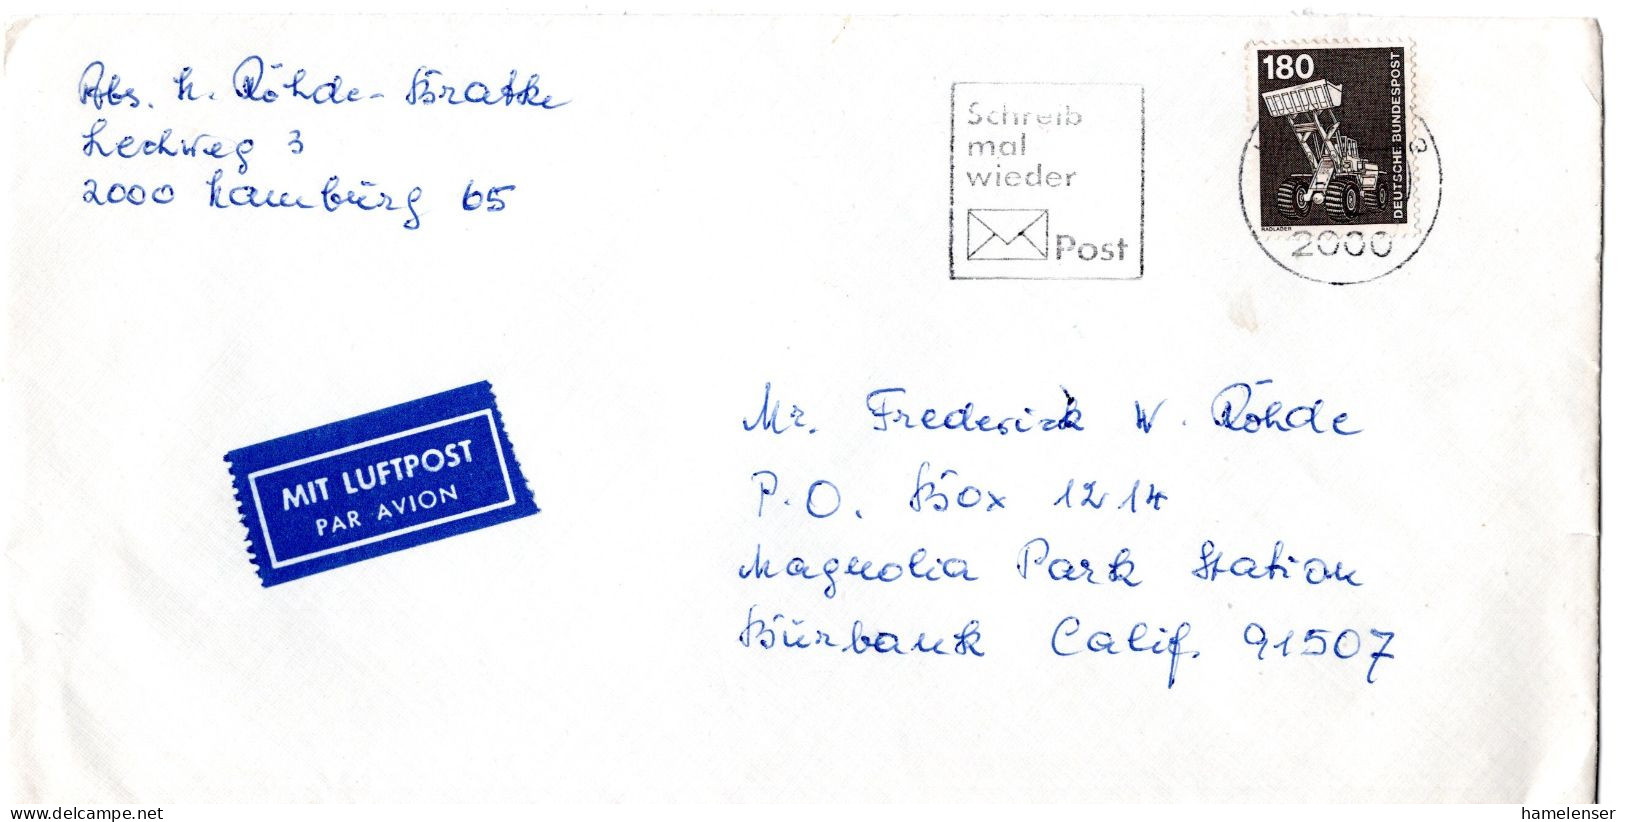 Abs. H. Röhde-Bratke
Lechweg 3
2000 Hamburg 65
Schreib
mal
wieder
Post
180
DEUTSCHE BUNDESPOST
RADLADER
2000
MIT LUFTPOST
PAR AVION
Mr. Frederick W. Röhde
P.O. Box 1214
Magnolia Park Station
Burbank Calif. 91507
hamelenser